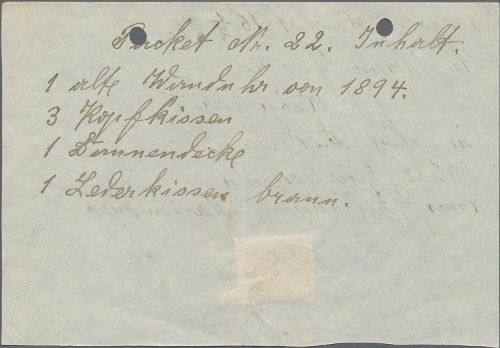 Packet Nr. 22. Inhalt.
1 alte Wanduhr von 1894.
3 Kopfkissen
1 Daunendecke
1 Lederkissen braun.